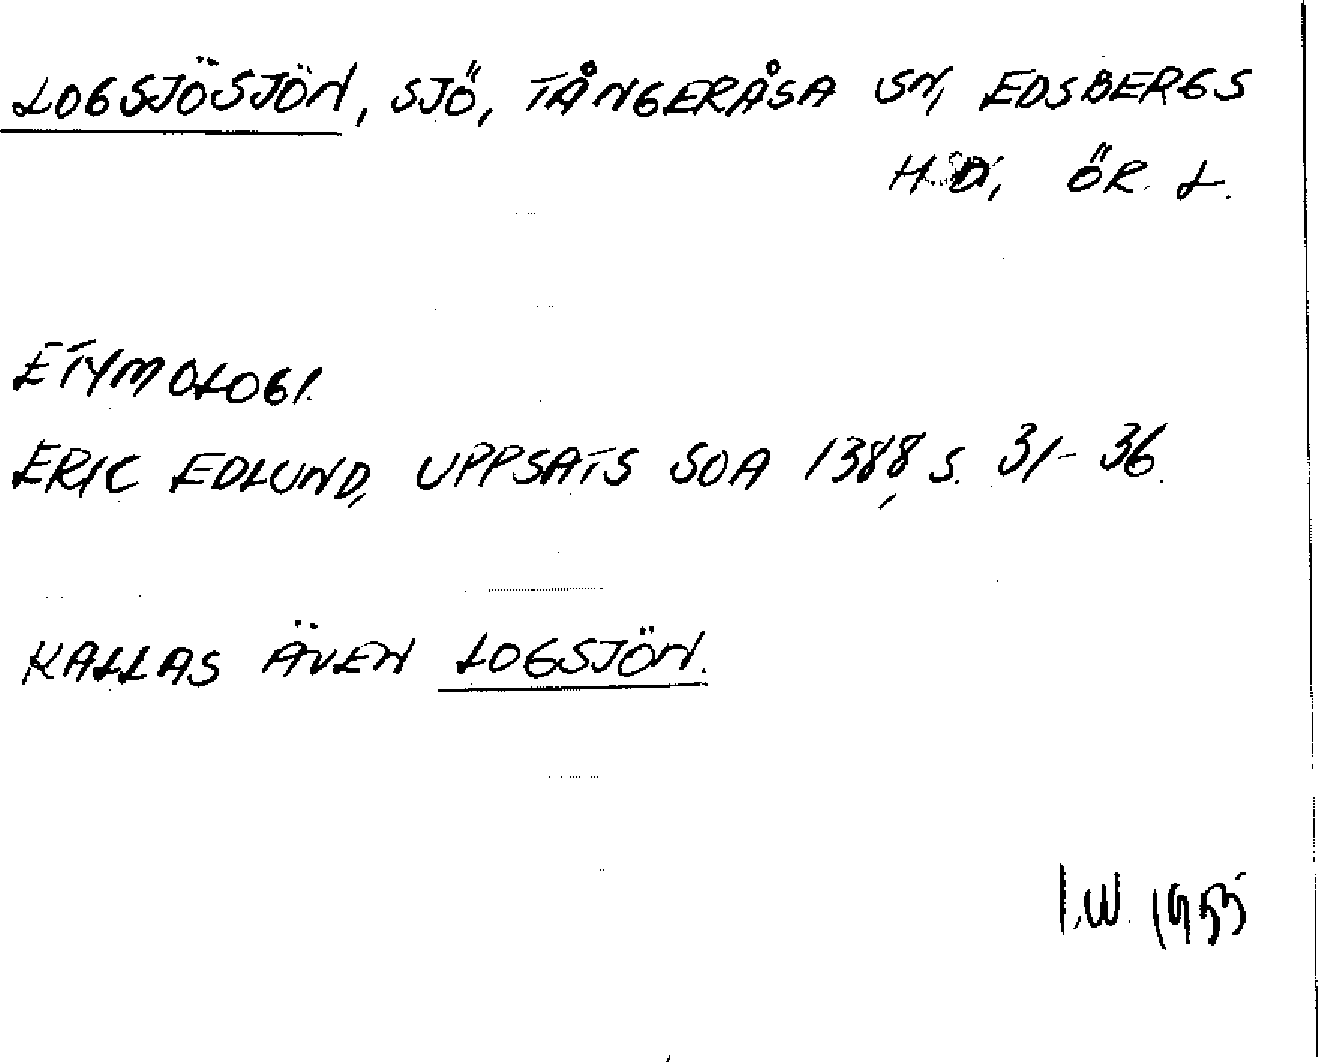 LOGSJÖSJÖN, SJÖ, TÅNGERÅSA SN, EDSBERGS
HD, ÖR. L.
ETYMOLOGI.
ERIC EDLUND, UPPSATS SOA 1388, S. 31-36.
KALLAS ÄVEN LOGSJÖN.
I.W. 1955